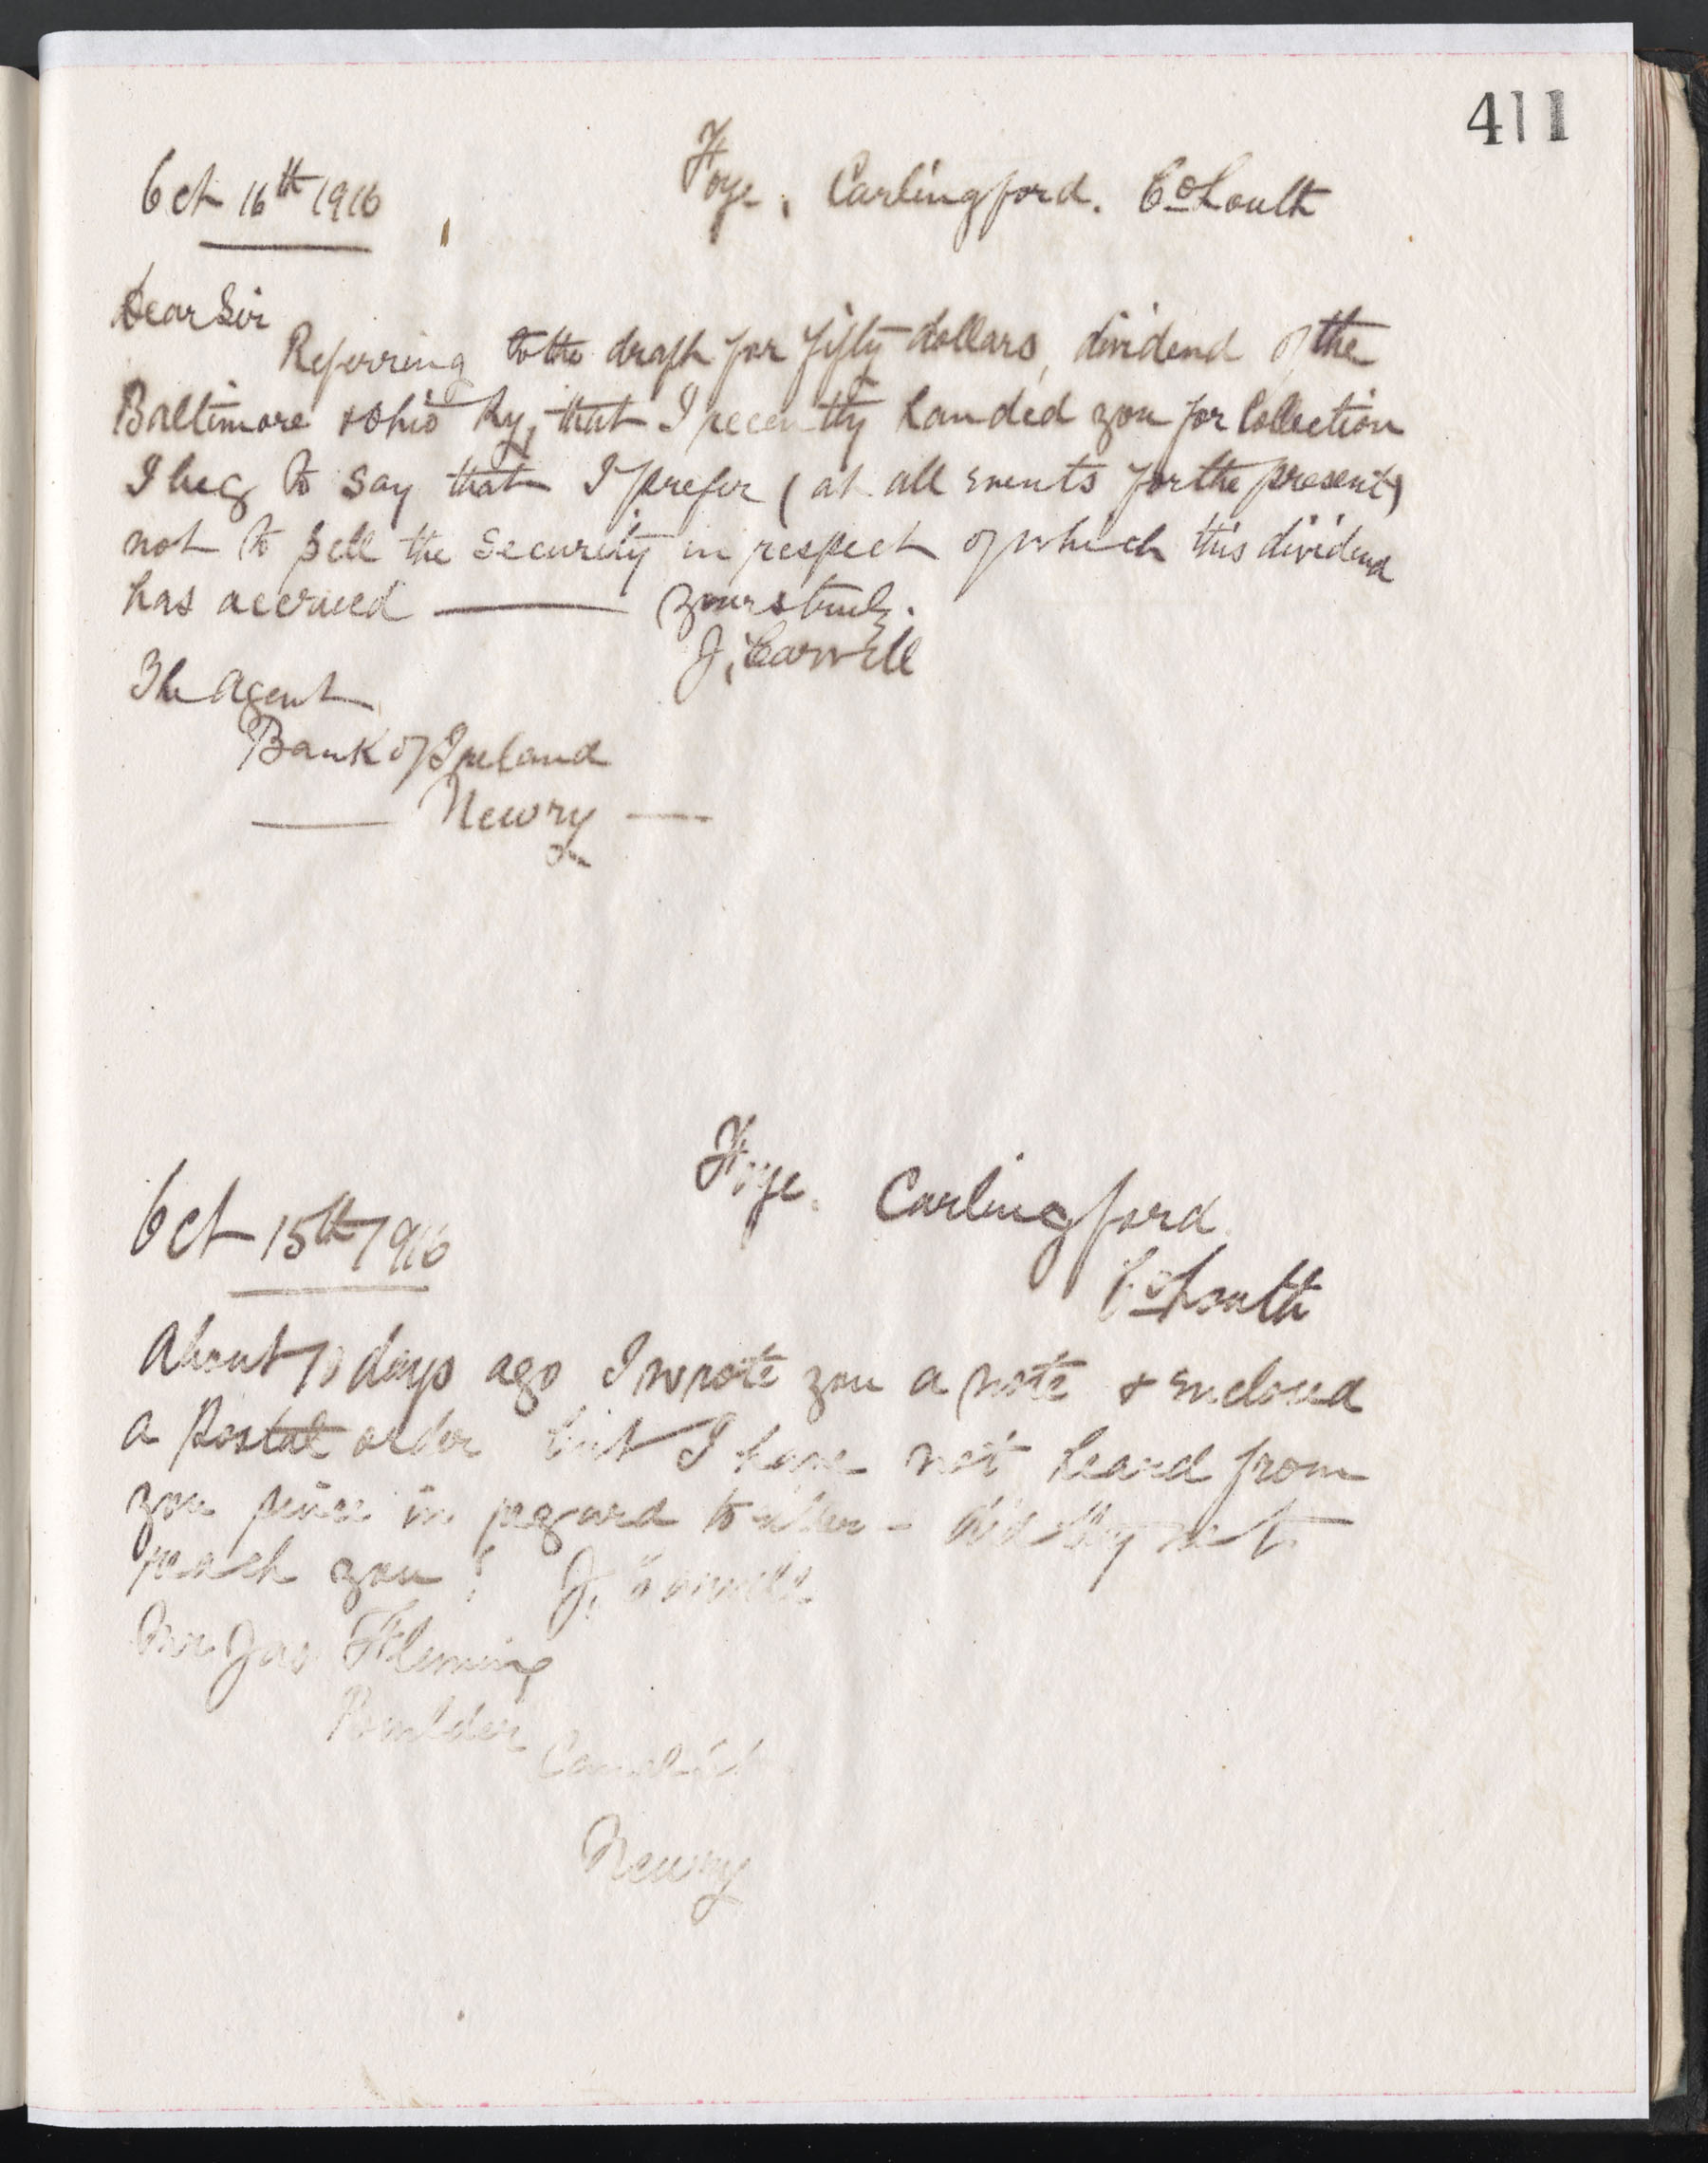 411
Oct 16th 1916
Foye, Carlingford. Co Louth
Dear Sir
Referring to the draft for fifty dollars, dividend of the
Baltimore & Ohio Ry, that I recently handed you for Collection
I beg to say that I prefer (at all events for the present)
not to sell the Security in respect of which this dividend
has accrued — yours truly.
J. Carvill
The Agent
Bank of Ireland
— Newry —
Foye. Carlingford
Oct 15th 1916
Co Louth
About 10 days ago I wrote you a note & enclosed
a Postal order but I have not heard from
you since in regard to - did they not
reach you? J. Carvill
Mr Jas Fleming
Newry